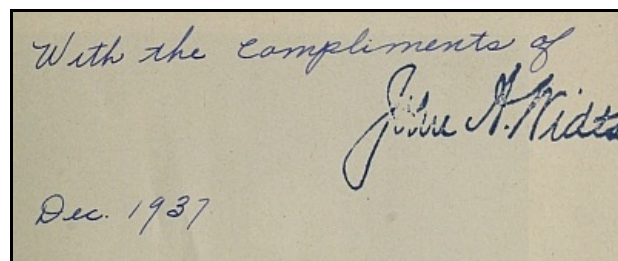 With the compliments of
John A. Widts
Dec. 1937